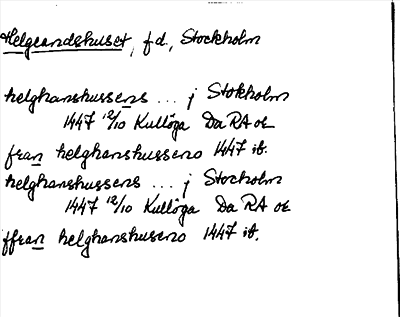 Helgeandshuset, f.d., Stockholm
helghanshussens ... j Stokholm
1447 12/10 Kullöga Da RA oe
fran helghanshusseno 1447 ib.
helghanshussens ... j Stocholm
1447 12/10 Kullöga Da RA oe
ffran helghanshuseno 1447 ib.